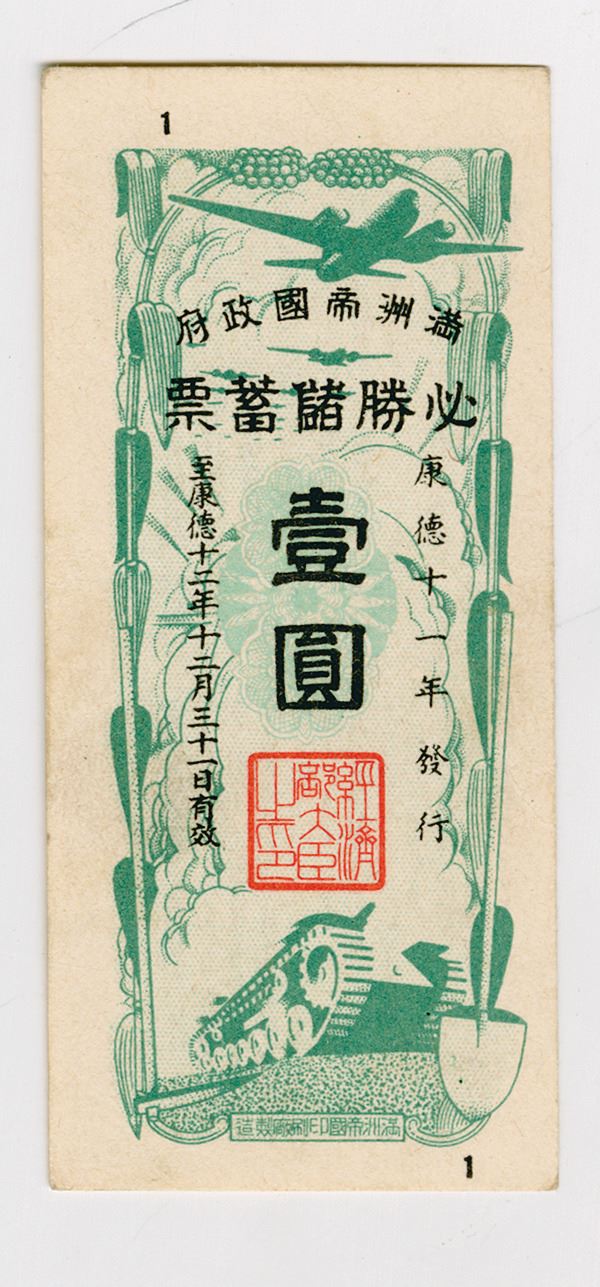 1
滿洲帝國政府
必勝儲蓄票
康德十一年發行
壹圓
至康德十二年十二月三十一日有效
經濟部大臣之印
滿洲帝國印刷廠製造
1